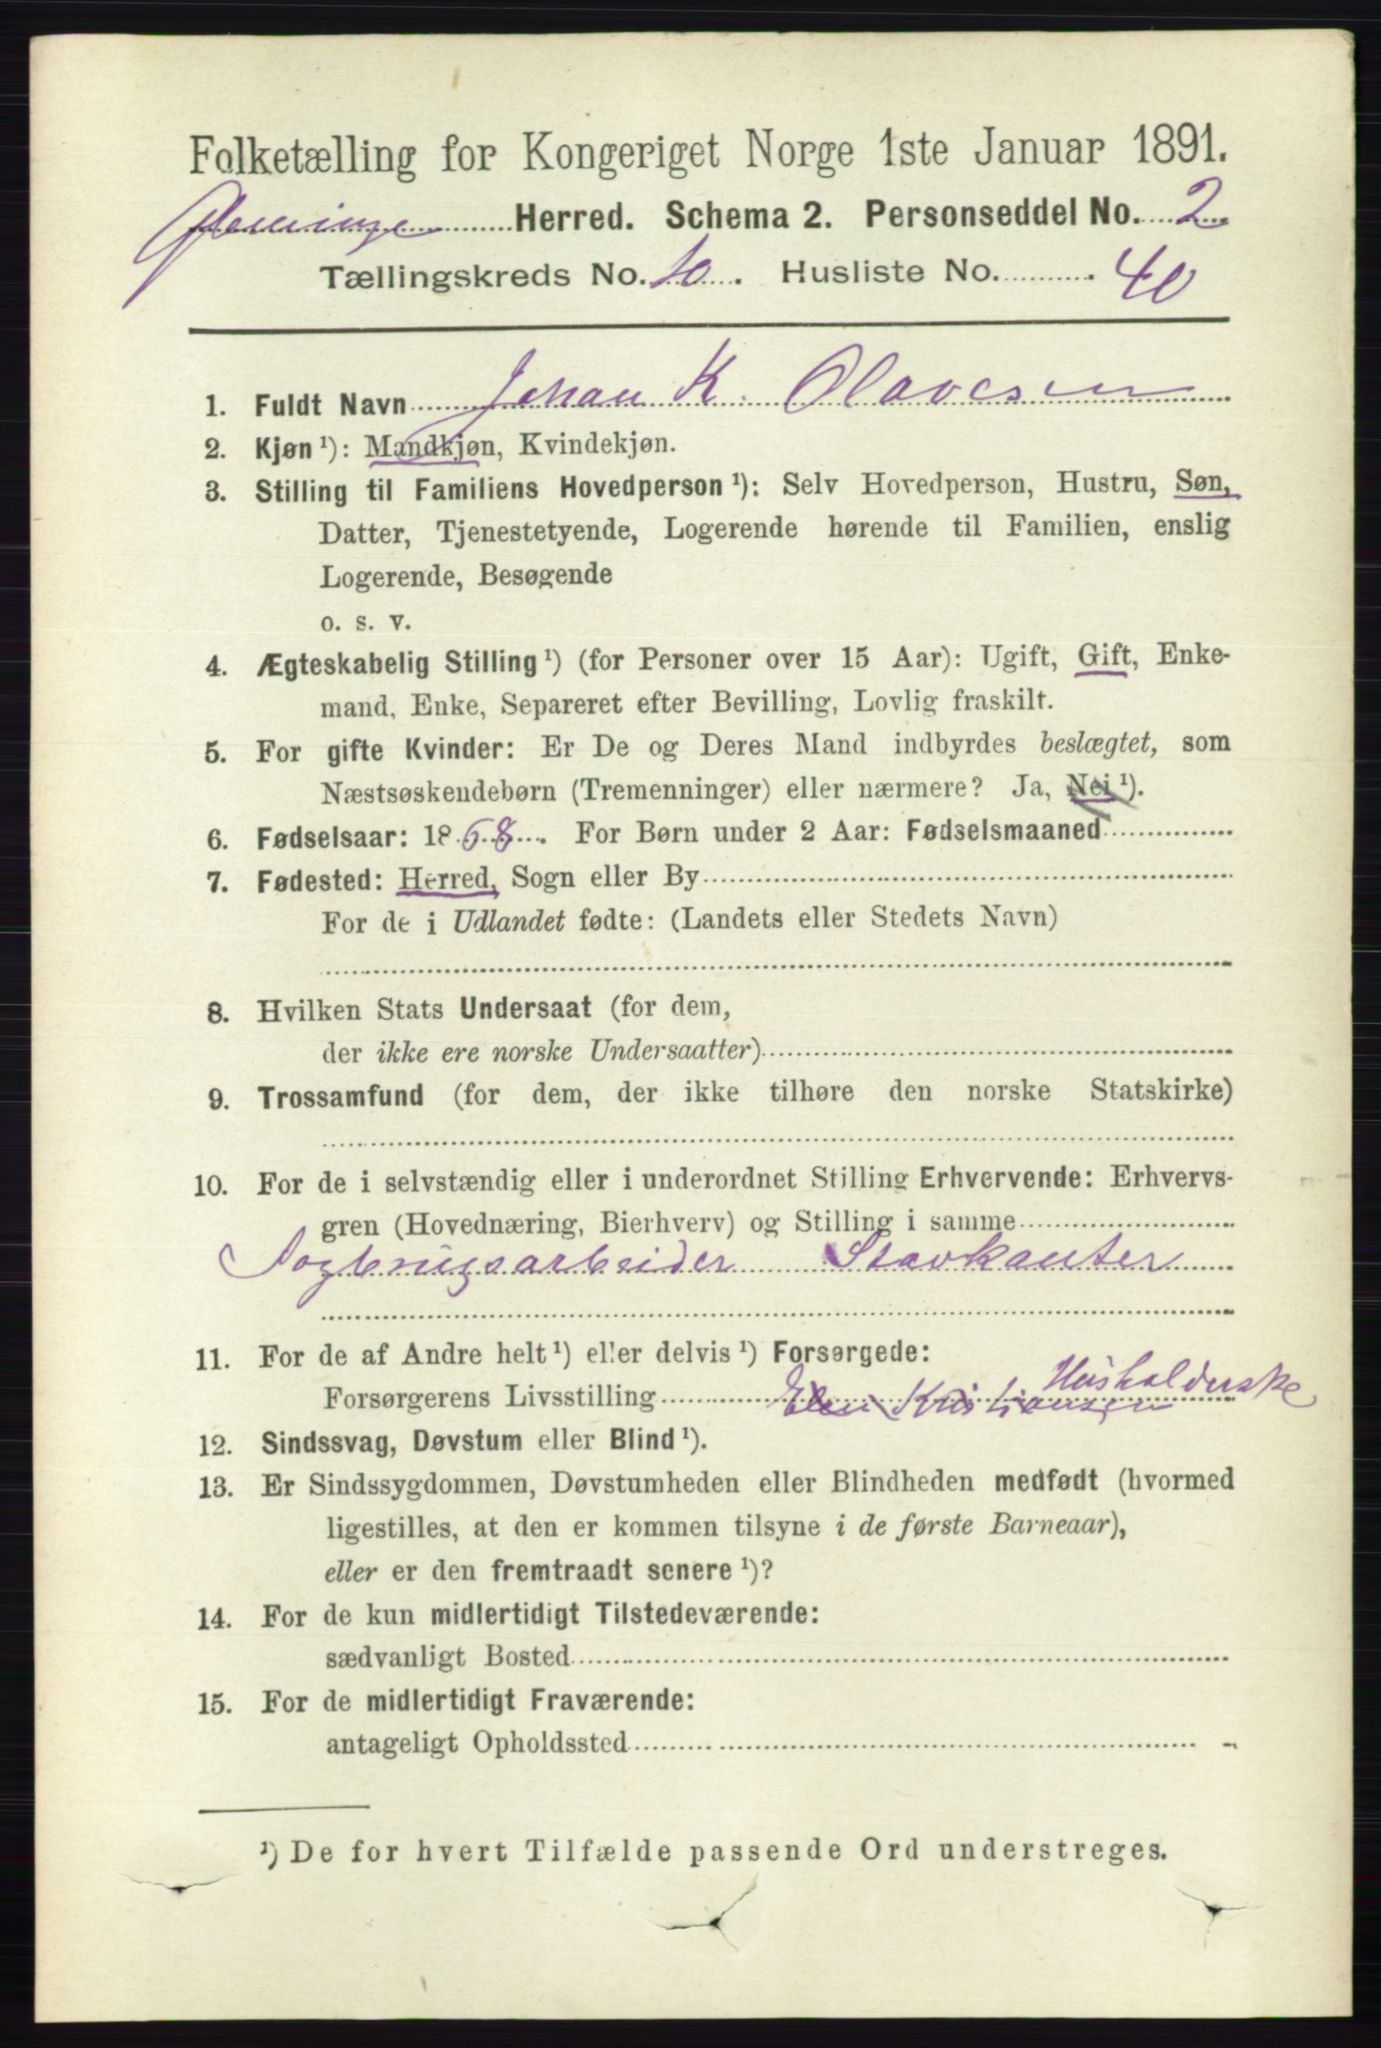 Folketælling for Kongeriget Norge 1ste Januar 1891.
Glemminge Herred. Schema 2. Personseddel No. 2
Tællingskreds No. 10. Husliste No. 40
1. Fuldt Navn Johan K. Olavesen
2. Kjøn ¹): Mandkjøn, Kvindekjøn.
3. Stilling til Familiens Hovedperson ¹): Selv Hovedperson, Hustru, Søn,
Datter, Tjenestetyende, Logerende hørende til Familien, enslig
Logerende, Besøgende
o. s. v.
4. Ægteskabelig Stilling ¹) (for Personer over 15 Aar): Ugift, Gift, Enke-
mand, Enke, Separeret efter Bevilling, Lovlig fraskilt.
5. For gifte Kvinder: Er De og Deres Mand indbyrdes beslægtet, som
Næstsøskendebørn (Tremenninger) eller nærmere? Ja, Nei ¹).
6. Fødselsaar: 1868. For Børn under 2 Aar: Fødselsmaaned
7. Fødested: Herred, Sogn eller By
For de i Udlandet fødte: (Landets eller Stedets Navn)
8. Hvilken Stats Undersaat (for dem,
der ikke ere norske Undersaatter)
9. Trossamfund (for dem, der ikke tilhøre den norske Statskirke)
10. For de i selvstændig eller i underordnet Stilling Erhvervende: Erhvervs-
gren (Hovednæring, Bierhverv) og Stilling i samme
Sagbrugsarbeider Stavkanter
11. For de af Andre helt ¹) eller delvis ¹) Forsørgede:
Husholderske
Forsørgerens Livsstilling Elen Kristiansen
12. Sindssvag, Døvstum eller Blind ¹).
13. Er Sindssygdommen, Døvstumheden eller Blindheden medfødt (hvormed
ligestilles, at den er kommen tilsyne i de første Barneaar),
eller er den fremtraadt senere ¹)?
14. For de kun midlertidigt Tilstedeværende:
sædvanligt Bosted
15. For de midlertidigt Fraværende:
antageligt Opholdssted
¹) De for hvert Tilfælde passende Ord understreges.